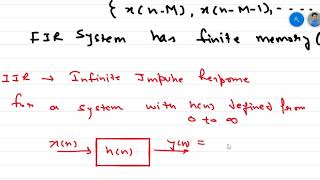 { x(n-M), x(n-M-1), - - - -
FIR System has finite memory (
IIR → Infinite Impulse Response
for a system with h(n) defined from
0 to ∞
x(n) → h(n) → y(n) =